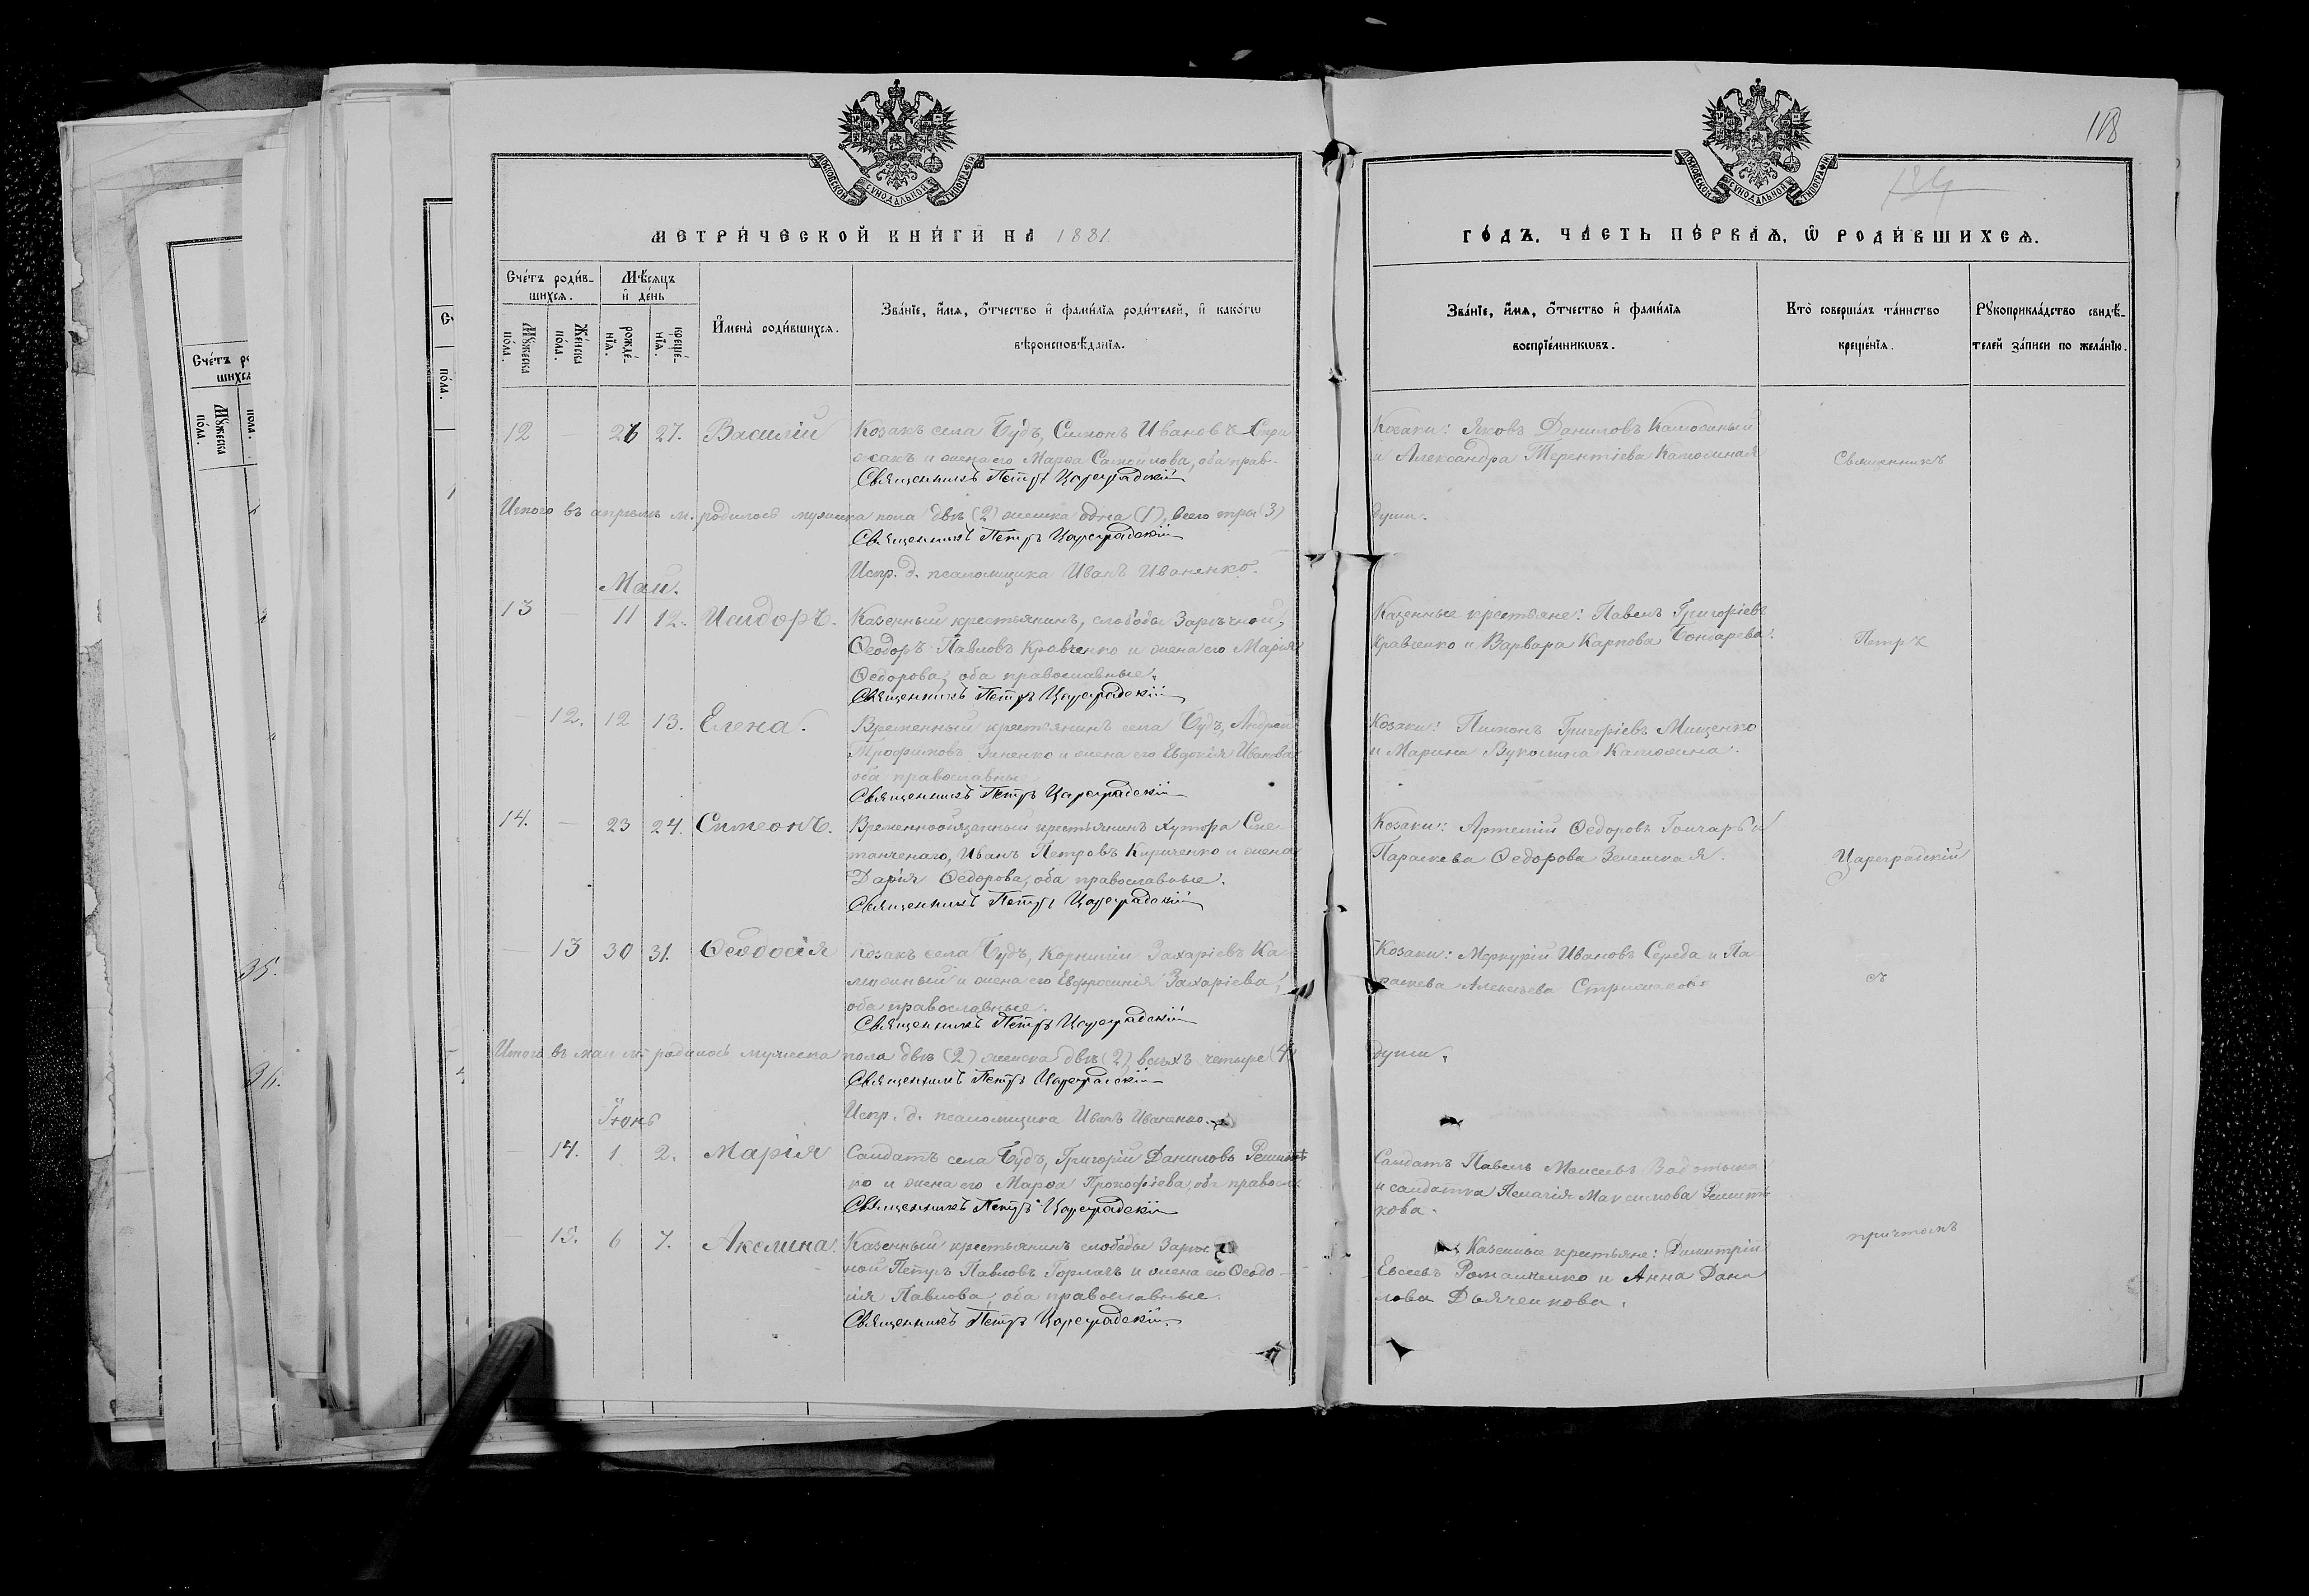 МОСКОВСКОЙ СѴНОДАЛЬНОЙ ТИПОГРАФІИ
МОСКОВСКОЙ СѴНОДАЛЬНОЙ ТИПОГРАФІИ
118
МЕТРИ́ЧЕСКОЙ КНИ́ГИ НА̀ 1881
ГО́ДЪ, ЧА́СТЬ ПЕ́РВАѦ, Ѽ РОДИ́ВШИХСѦ.
Сче́тъ роди́в-
шихсѧ.
Мѣ́сѧцъ
и҆ де́нь
Мꙋ́жеска
по́ла.
Же́нска
по́ла.
рожде́-
нїѧ.
креще́-
нїѧ.
И҆мена̀ роди́вшихсѧ.
Зва́нїе, и҆́мѧ, о҆́тчество и҆ фами́лїѧ роди́телей, и҆ како́гѡ
вѣроисповѣ́данїѧ.
Зва́нїе, и҆́мѧ, о҆́тчество и҆ фами́лїѧ
воспрїе́мникѡвъ.
Кто̀ соверша́лъ та́инство
креще́нїѧ.
Рꙋкоприкла́дство свидѣ́-
телей за́писи по жела́нїю.
12 26 27. Василій Козакъ села Будъ, Симонъ Ивановъ Стри
жакъ и жена его Марѳа Самойлова, оба прав.
Священникъ Петръ Цареградскій
Козаки: Яковъ Даниловъ Калюжный
и Александра Терентіева Калюжная
Священникъ
Итого въ апрѣлѣ м. родилось мужеска пола двѣ (2) женска одна (1), всего три (3)
души.
Священникъ Петръ Цареградскій
Испр. д. псаломщика Иванъ Иваненко.
Май.
13 — 11 12. Исидоръ. Казенный крестьянинъ, слободы Зарѣчной,
Ѳеодоръ Павловъ Кравченко и жена его Марія
Ѳедорова, оба православные.
Священникъ Петръ Цареградскій
Казенные крестьяне: Павелъ Григоріевъ
Кравченко и Варвара Карпова Бондарева.
Петръ
— 12. 12 13. Елена. Временный крестьянинъ села Будъ, Андрей
Трофимовъ Зиненко и жена его Евдокія Иванова
оба православные
Священникъ Петръ Цареградскій
Козаки: Пимонъ Григоріевъ Мищенко
и Марина Вуколина Калюжина.
14. — 23 24. Симеонъ. Временнообязанный крестьянинъ Хутора Сме
танченаго, Иванъ Петровъ Кириченко и жена
Дарія Ѳедорова, оба православные.
Священникъ Петръ Цареградскій
Козаки: Артемій Ѳедоровъ Гончаръ и
Параскева Ѳедорова Зеленская.
Цареградскій
— 13 30 31. Ѳеодосія Козакъ села Будъ, Корнилій Захаріевъ Ка
люжный и жена его Евфросинія Захаріева,
оба православные.
Священникъ Петръ Цареградскій
Козаки: Меркурій Ивановъ Середа и Па
раскева Алексѣева Стрижакова
съ
Итого въ маи м. родилось мужеска пола двѣ (2) женска двѣ (2), всѣхъ четыре (4)
души.
Священникъ Петръ Цареградскій
Испр. д. псаломщика Иванъ Иваненко.
Іюнь
— 14. 1 2. Марія Солдатъ села Будъ, Григорій Даниловъ
ко и жена его Марѳа Прокофіева, оба правосл.
Священникъ Петръ Цареградскій
Солдатъ Павелъ Моисеевъ
и солдатка Пелагія Максимова
кова.
— 15. 6 7. Акелина. Казенный крестьянинъ слободы Зарѣч
ной Петръ Павловъ Горлачъ и жена его Ѳеодо
сія Павлова, оба православные.
Священникъ Петръ Цареградскій.
Казенные крестьяне: Димитрій
Евсеевъ Романенко и Анна Дани
лова Дьяченкова.
причтомъ
35.
36.